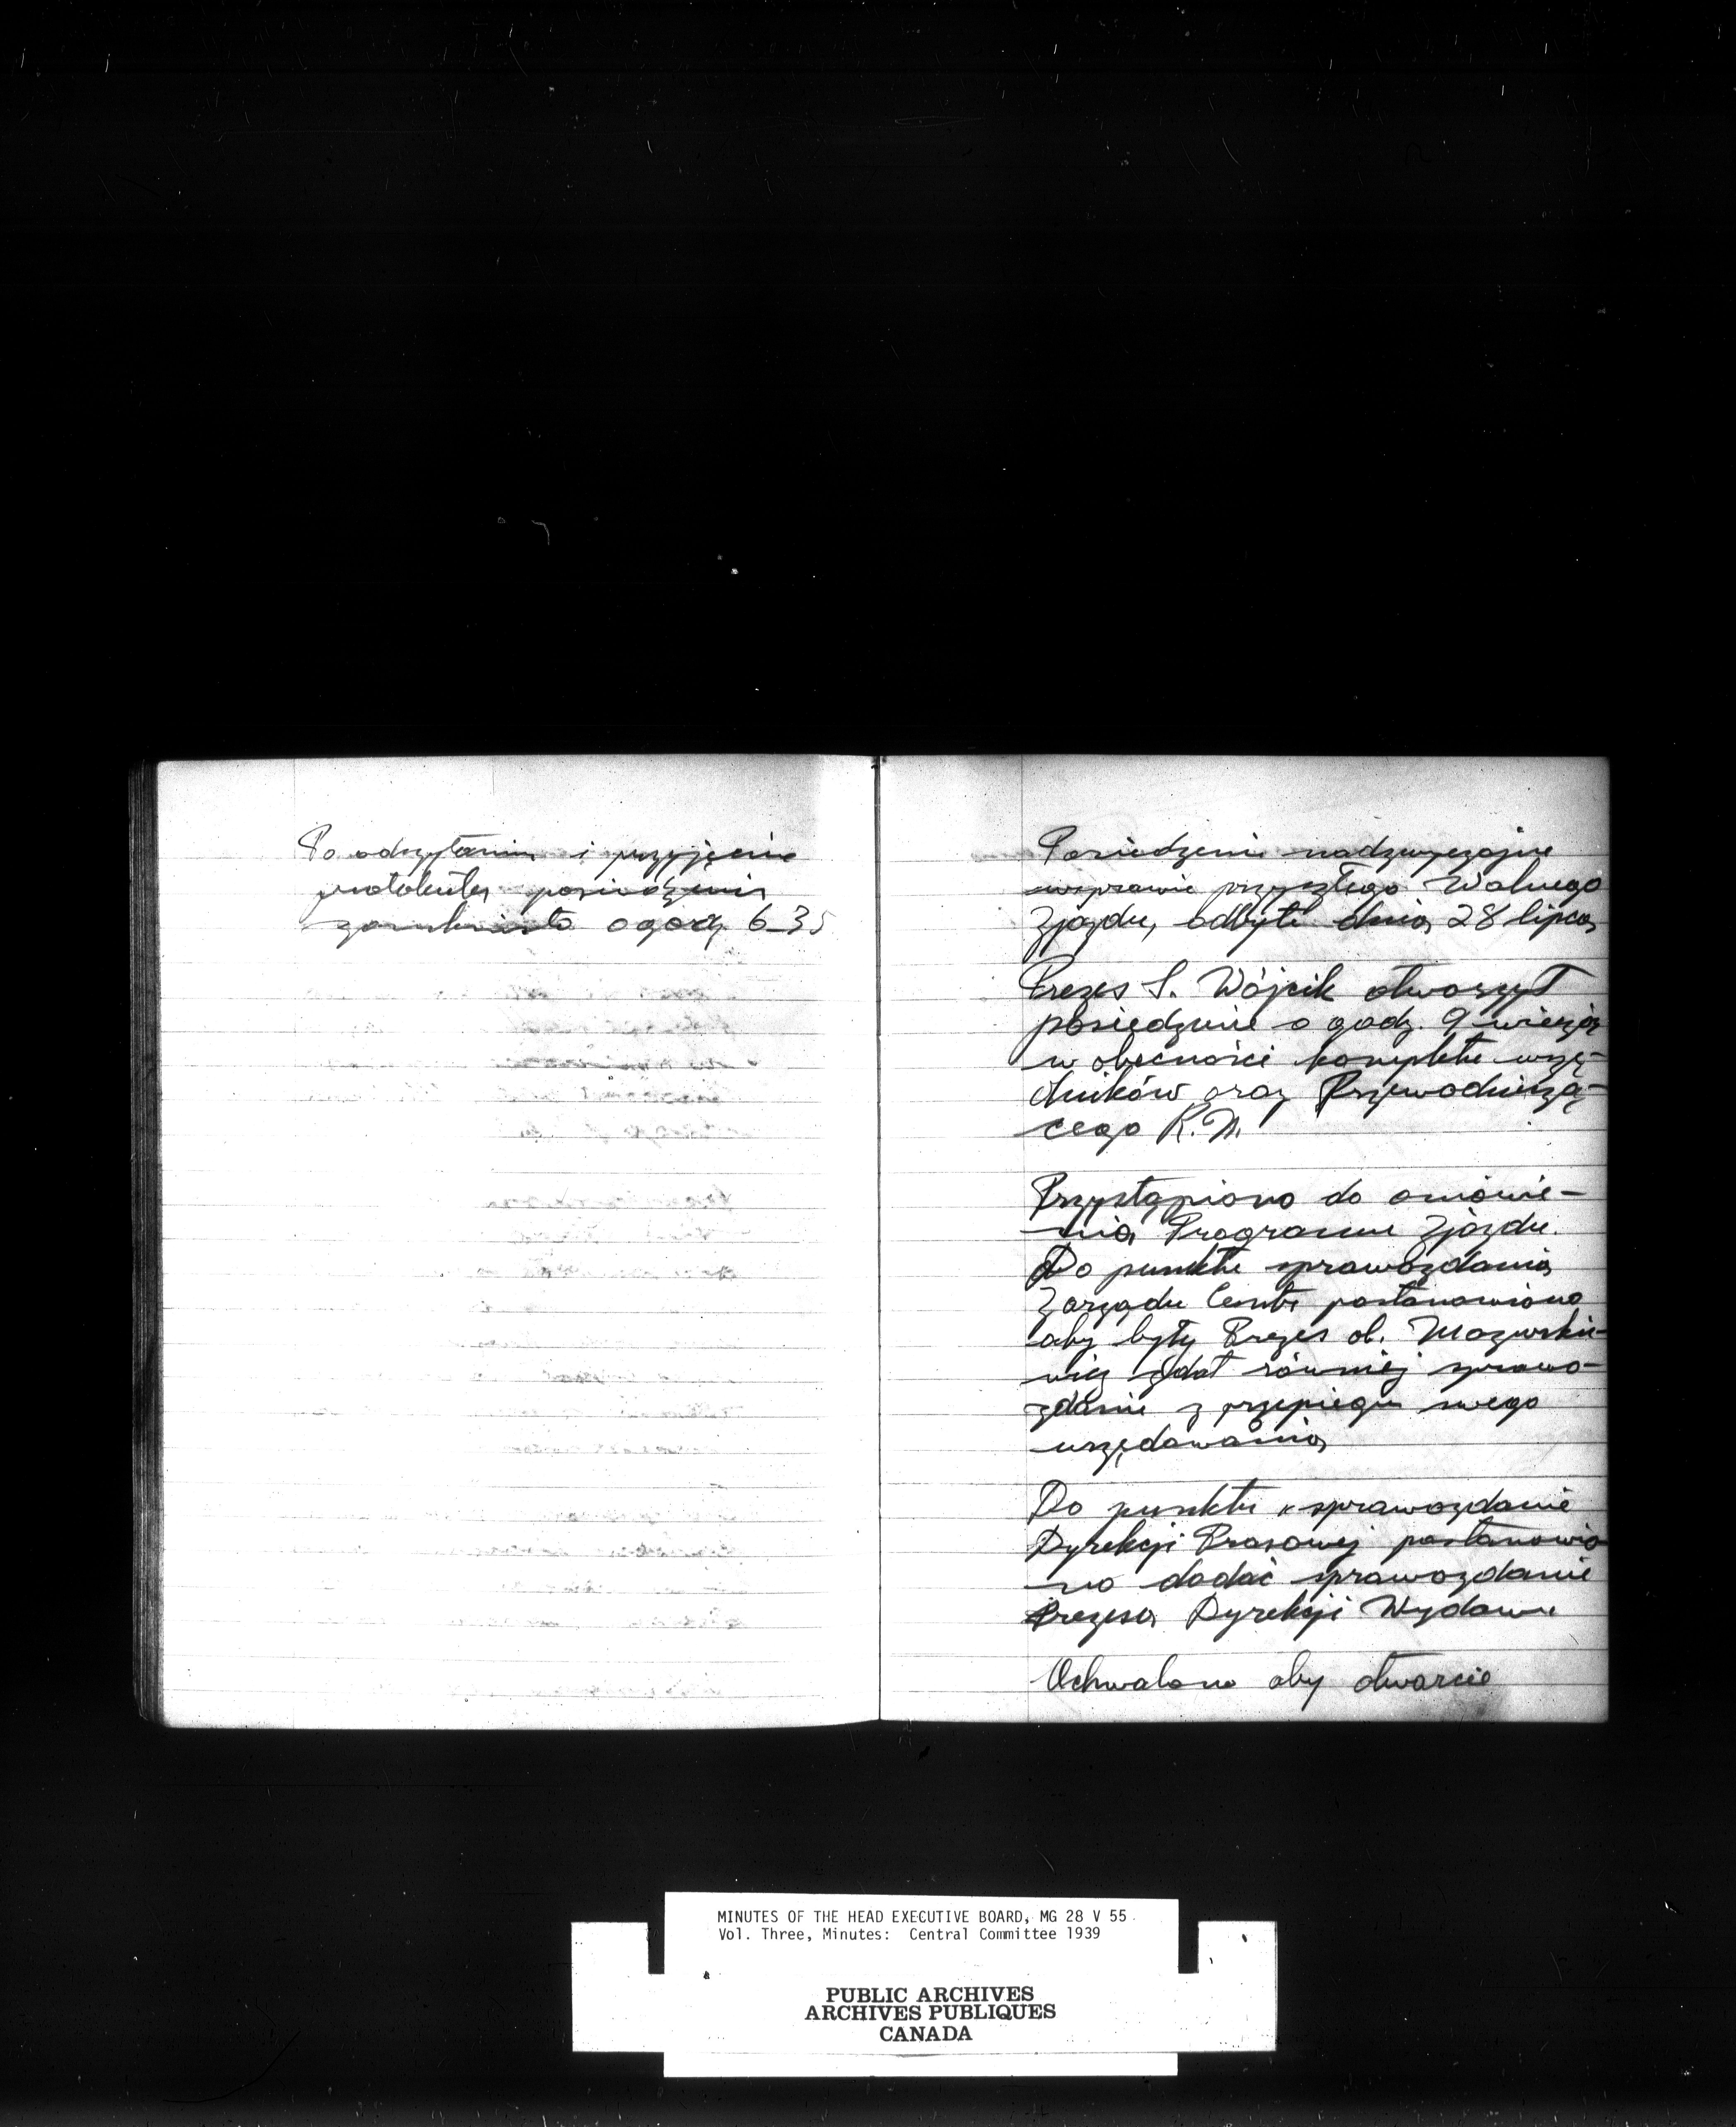 Po odczytaniu i przyjęciu
protokułu posiedzenia
zamknięto o godz 6_35
Posiedzenie nadzwyczajne
wsprawie przyszłego Walnego
Zjazdu, odbyte dnia 28 lipca
Prezes S. Wójcik otworzył
posiedzenie o godz. 9 wieczór
w obecności kompletu urzę-
dników oraz Przewodniczą-
cego R.N.
Przystąpiono do omówie-
nia Programu Zjazdu.
Do punktu sprawozdania
Zarządu Centr postanowiono
aby były Prezes ob. Mazurkie-
wicz zdał również sprawo-
zdanie z przepiegu swego
urzędowania
Do punktu sprawozdanie
Dyrekcji Prasowej postanowio
no dodać sprawozdanie
Prezesa Dyrekcji Wydawn
Uchwalono aby otwarcie
MINUTES OF THE HEAD EXECUTIVE BOARD, MG 28 V 55
Vol. Three, Minutes: Central Committee 1939
PUBLIC ARCHIVES
ARCHIVES PUBLIQUES
CANADA